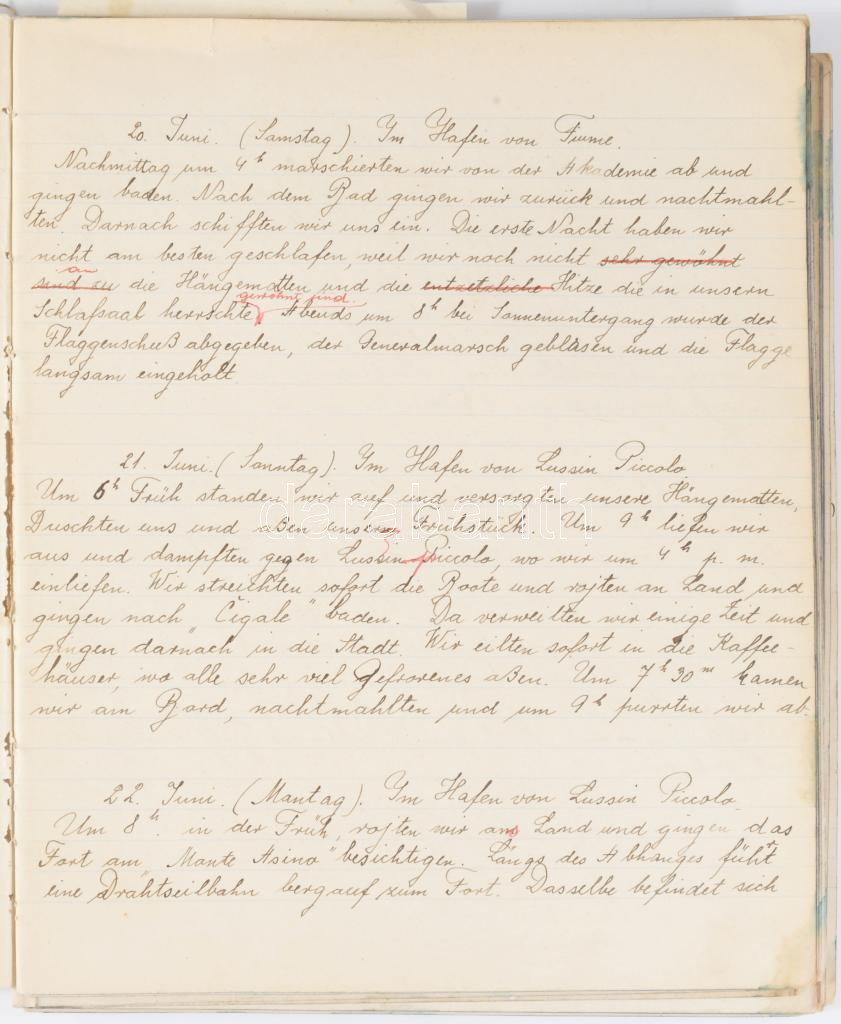 20. Juni. (Samstag). Im Hafen von Fiume.
Nachmittag um 4h marschierten wir von der Akademie ab und
gingen baden. Nach dem Bad gingen wir zurück und nachtmahl-
ten. Darnach schifften wir uns ein. Die erste Nacht haben wir
nicht am besten geschlafen, weil wir noch nicht sehr gewöhnt
an
sind zu die Hängematten und die entzetzliche Hitze die in unsern
gewöhnt sind.
Schlafsaal herrschte, Abends um 8h bei Sonnenuntergang wurde der
Flaggenschuß abgegeben, der Generalmarsch geblasen und die Flagge
langsam eingeholt.
21. Juni. (Sonntag). Im Hafen von Lussin Piccolo.
Um 6h Früh standen wir auf und versorgten unsere Hängematten,
Duschten uns und aßen unsern Frühstück. Um 9h liefen wir
aus und dampften gegen Lussin-Piccolo, wo wir um 4h p. m.
einliefen. Wir streichten sofort die Boote und rojten an Land und
gingen nach "Čigale" baden. Da verweilten wir einige Zeit und
gingen darnach in die Stadt. Wir eilten sofort in die Kaffee-
häuser, wo alle sehr viel Gefrorenes aßen. Um 7h 30m kamen
wir am Bord, nachtmahlten und um 9h purrten wir ab.
22. Juni. (Montag). Im Hafen von Lussin Piccolo.
Um 8h. in der Früh, rojten wir ans Land und gingen das
Fort am "Monte Asino" besichtigen. Längs des Abhanges füht
eine Drahtseilbahn bergauf zum Fort. Dasselbe befindet sich
darabanth